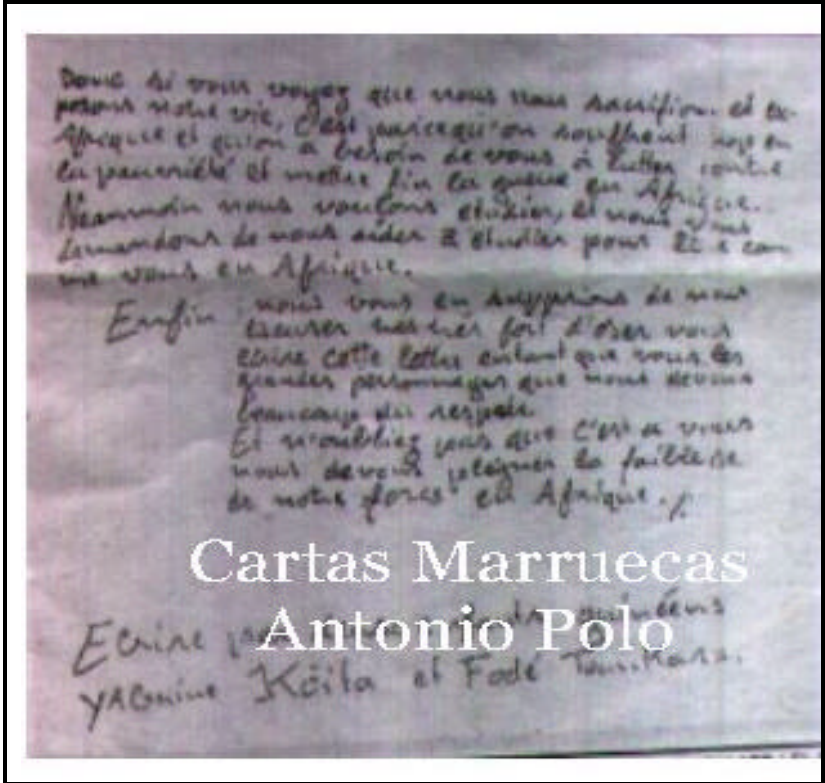 Donc si vous voyez que nous nous sacrifions et ex-
posons notre vie, c'est parcequ'on souffrent trop en
Afrique et qu'on a besoin de vous à lutter contre
la pauvriété et mettre fin la guerre en Afrique.
Neanmoin nous voulons etudier, et nous vous
demandons de nous aider à etudier pour être com
me vous en Afrique.
Enfin nous vous en supprions de nous
excuser très très fort d'oser vous
ecrire cette lettre entant que vous les
grandes personnages que nous devons
beaucoup du respect.
Et n'oubliez pas que c'est a vous
nous devons pleigner la faiblesse
de notre force en Afrique.
Cartas Marruecas
Antonio Polo
Ecrire guinéens
YAGuine Köita et Fodé Tounkara.